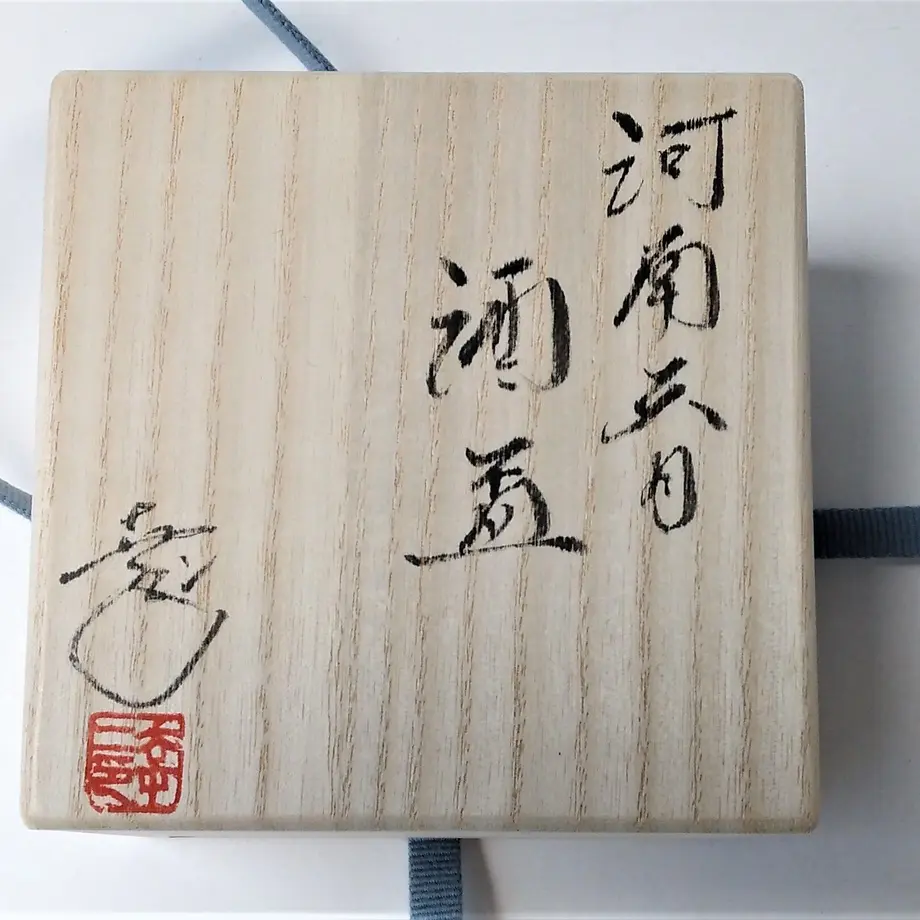 河南天目
酒盃